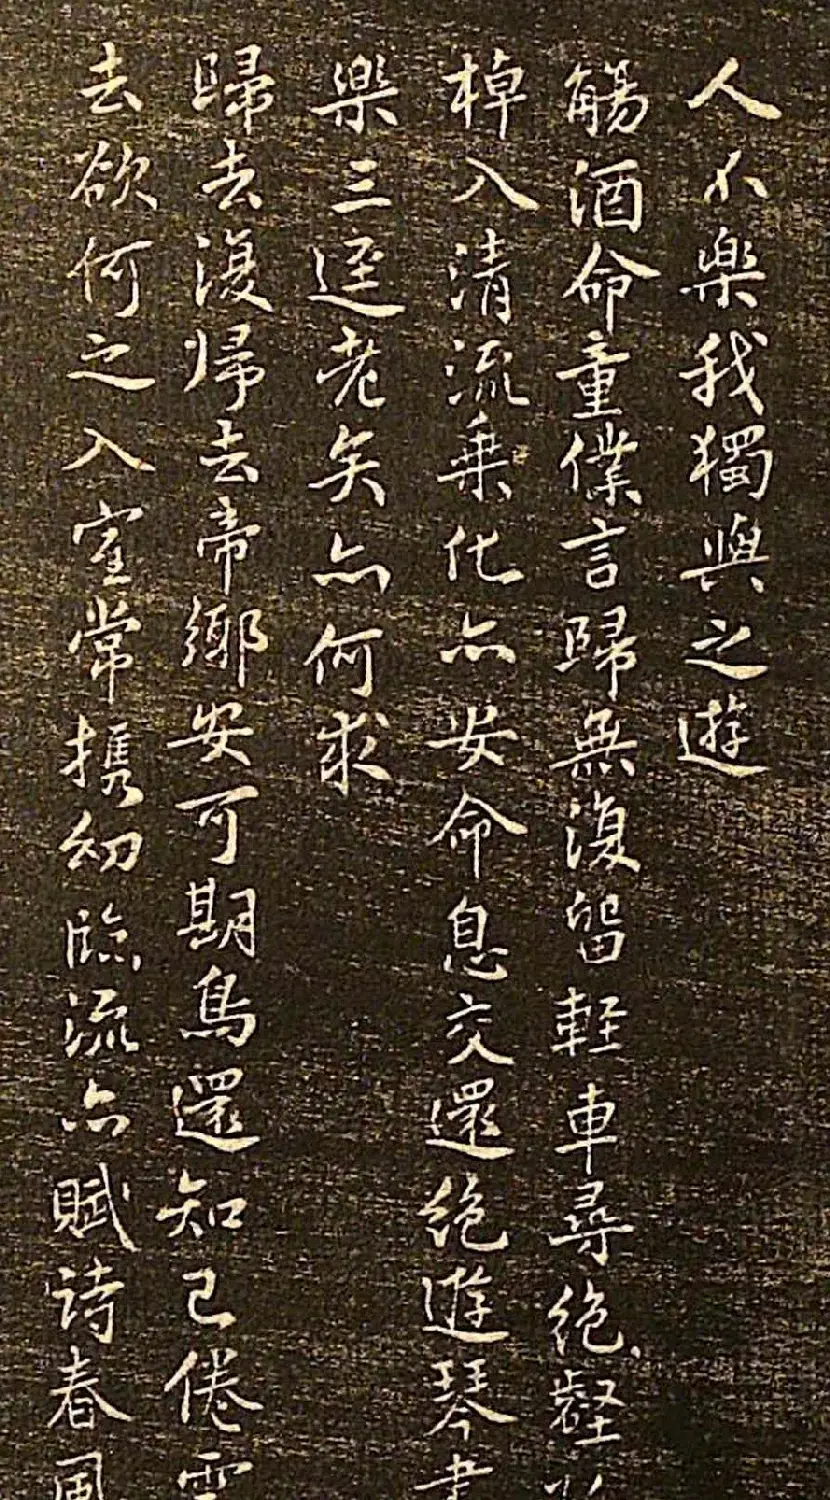 人不樂我獨與之遊
觴酒命童僕言歸無復留輕車尋絕壑
棹入清流乗化亦安命息交還絕遊琴書
樂三逕老矣亦何求
歸去復歸去帝鄉安可期鳥還知已倦雲
去欲何之入室常携幼臨流亦賦诗春風